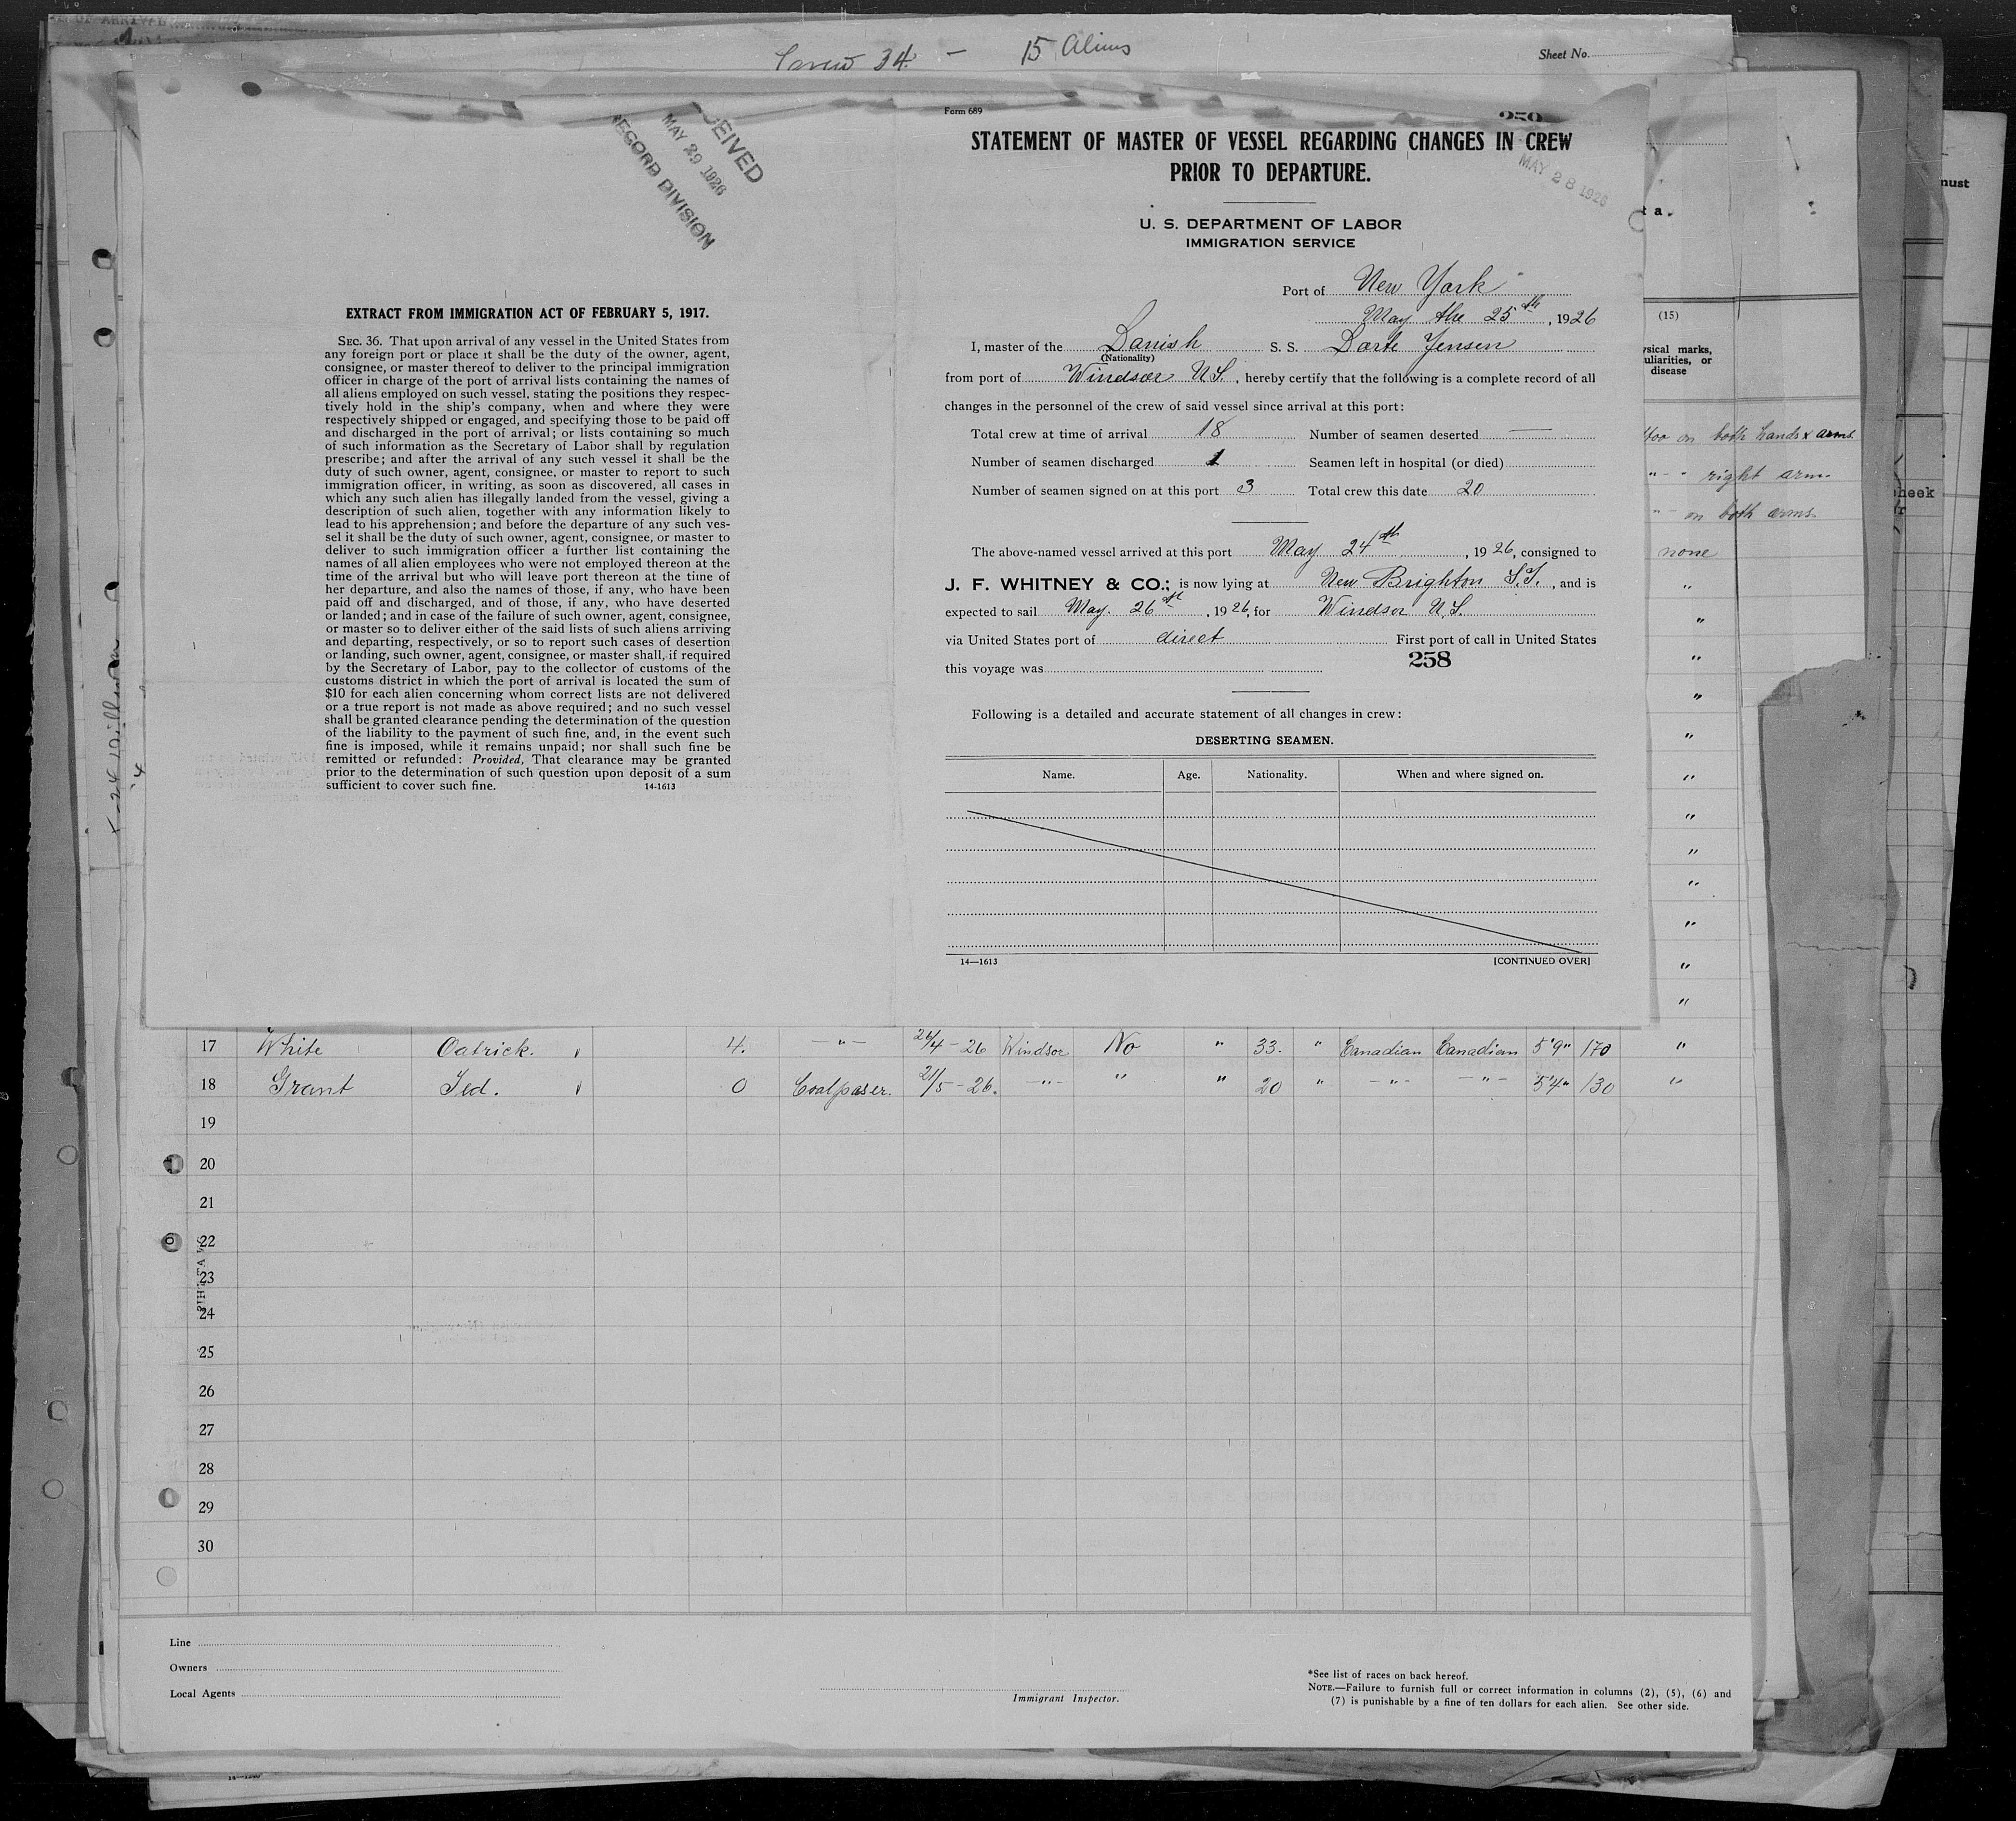 Crew 34. - 15 Aliens
Sheet No.
RECORD DIVISION
MAY 29 1926
EXTRACT FROM IMMIGRATION ACT OF FEBRUARY 5, 1917.
SEC. 36. That upon arrival of any vessel in the United States from
any foreign port or place it shall be the duty of the owner, agent,
consignee, or master thereof to deliver to the principal immigration
officer in charge of the port of arrival lists containing the names of
all aliens employed on such vessel, stating the positions they respec-
tively hold in the ship's company, when and where they were
respectively shipped or engaged, and specifying those to be paid off
and discharged in the port of arrival; or lists containing so much
of such information as the Secretary of Labor shall by regulation
prescribe; and after the arrival of any such vessel it shall be the
duty of such owner, agent, consignee, or master to report to such
immigration officer, in writing, as soon as discovered, all cases in
which any such alien has illegally landed from the vessel, giving a
description of such alien, together with any information likely to
lead to his apprehension; and before the departure of any such ves-
sel it shall be the duty of such owner, agent, consignee, or master to
deliver to such immigration officer a further list containing the
names of all alien employees who were not employed thereon at the
time of the arrival but who will leave port thereon at the time of
her departure, and also the names of those, if any, who have been
paid off and discharged, and of those, if any, who have deserted
or landed; and in case of the failure of such owner, agent, consignee,
or master so to deliver either of the said lists of such aliens arriving
and departing, respectively, or so to report such cases of desertion
or landing, such owner, agent, consignee, or master shall, if required
by the Secretary of Labor, pay to the collector of customs of the
customs district in which the port of arrival is located the sum of
$10 for each alien concerning whom correct lists are not delivered
or a true report is not made as above required; and no such vessel
shall be granted clearance pending the determination of the question
of the liability to the payment of such fine, and, in the event such
fine is imposed, while it remains unpaid; nor shall such fine be
remitted or refunded: Provided, That clearance may be granted
prior to the determination of such question upon deposit of a sum
sufficient to cover such fine. 14-1613
Form 689
STATEMENT OF MASTER OF VESSEL REGARDING CHANGES IN CREW
PRIOR TO DEPARTURE.
MAY 28 1926
U. S. DEPARTMENT OF LABOR
IMMIGRATION SERVICE
Port of New York
May the 25th, 1926
I, master of the Danish S. S. Dorte Jensen
(Nationality)
from port of Windsor N.S., hereby certify that the following is a complete record of all
changes in the personnel of the crew of said vessel since arrival at this port:
Total crew at time of arrival 18 Number of seamen deserted —
Number of seamen discharged 1 Seamen left in hospital (or died)
Number of seamen signed on at this port 3 Total crew this date 20
The above-named vessel arrived at this port May 24th, 1926, consigned to
J. F. WHITNEY & CO.; is now lying at New Brighton S.I., and is
expected to sail May. 26th, 1926, for Windsor N.S.
via United States port of direct First port of call in United States
this voyage was 258
Following is a detailed and accurate statement of all changes in crew:
DESERTING SEAMEN.
Name. Age. Nationality. When and where signed on.
14—1613 [CONTINUED OVER]
(15)
marks,
or
disease
on both hands & arms.
" - " right arm.
" - on both arms.
none
"
"
"
"
"
"
"
"
"
"
"
"
17 White Patrick. 4. —"— 24/4 - 26 Windsor No " 33. " Canadian Canadian 5'9" 170 "
18 Grant Ted. 0 Coalpaser. 21/5 - 26. —"— " " 20 " —"— —"— 5'4" 130 "
19
20
21
22
23
24
25
26
27
28
29
30
Line
Owners
Local Agents
Immigrant Inspector.
*See list of races on back hereof.
NOTE.—Failure to furnish full or correct information in columns (2), (5), (6) and
(7) is punishable by a fine of ten dollars for each alien. See other side.